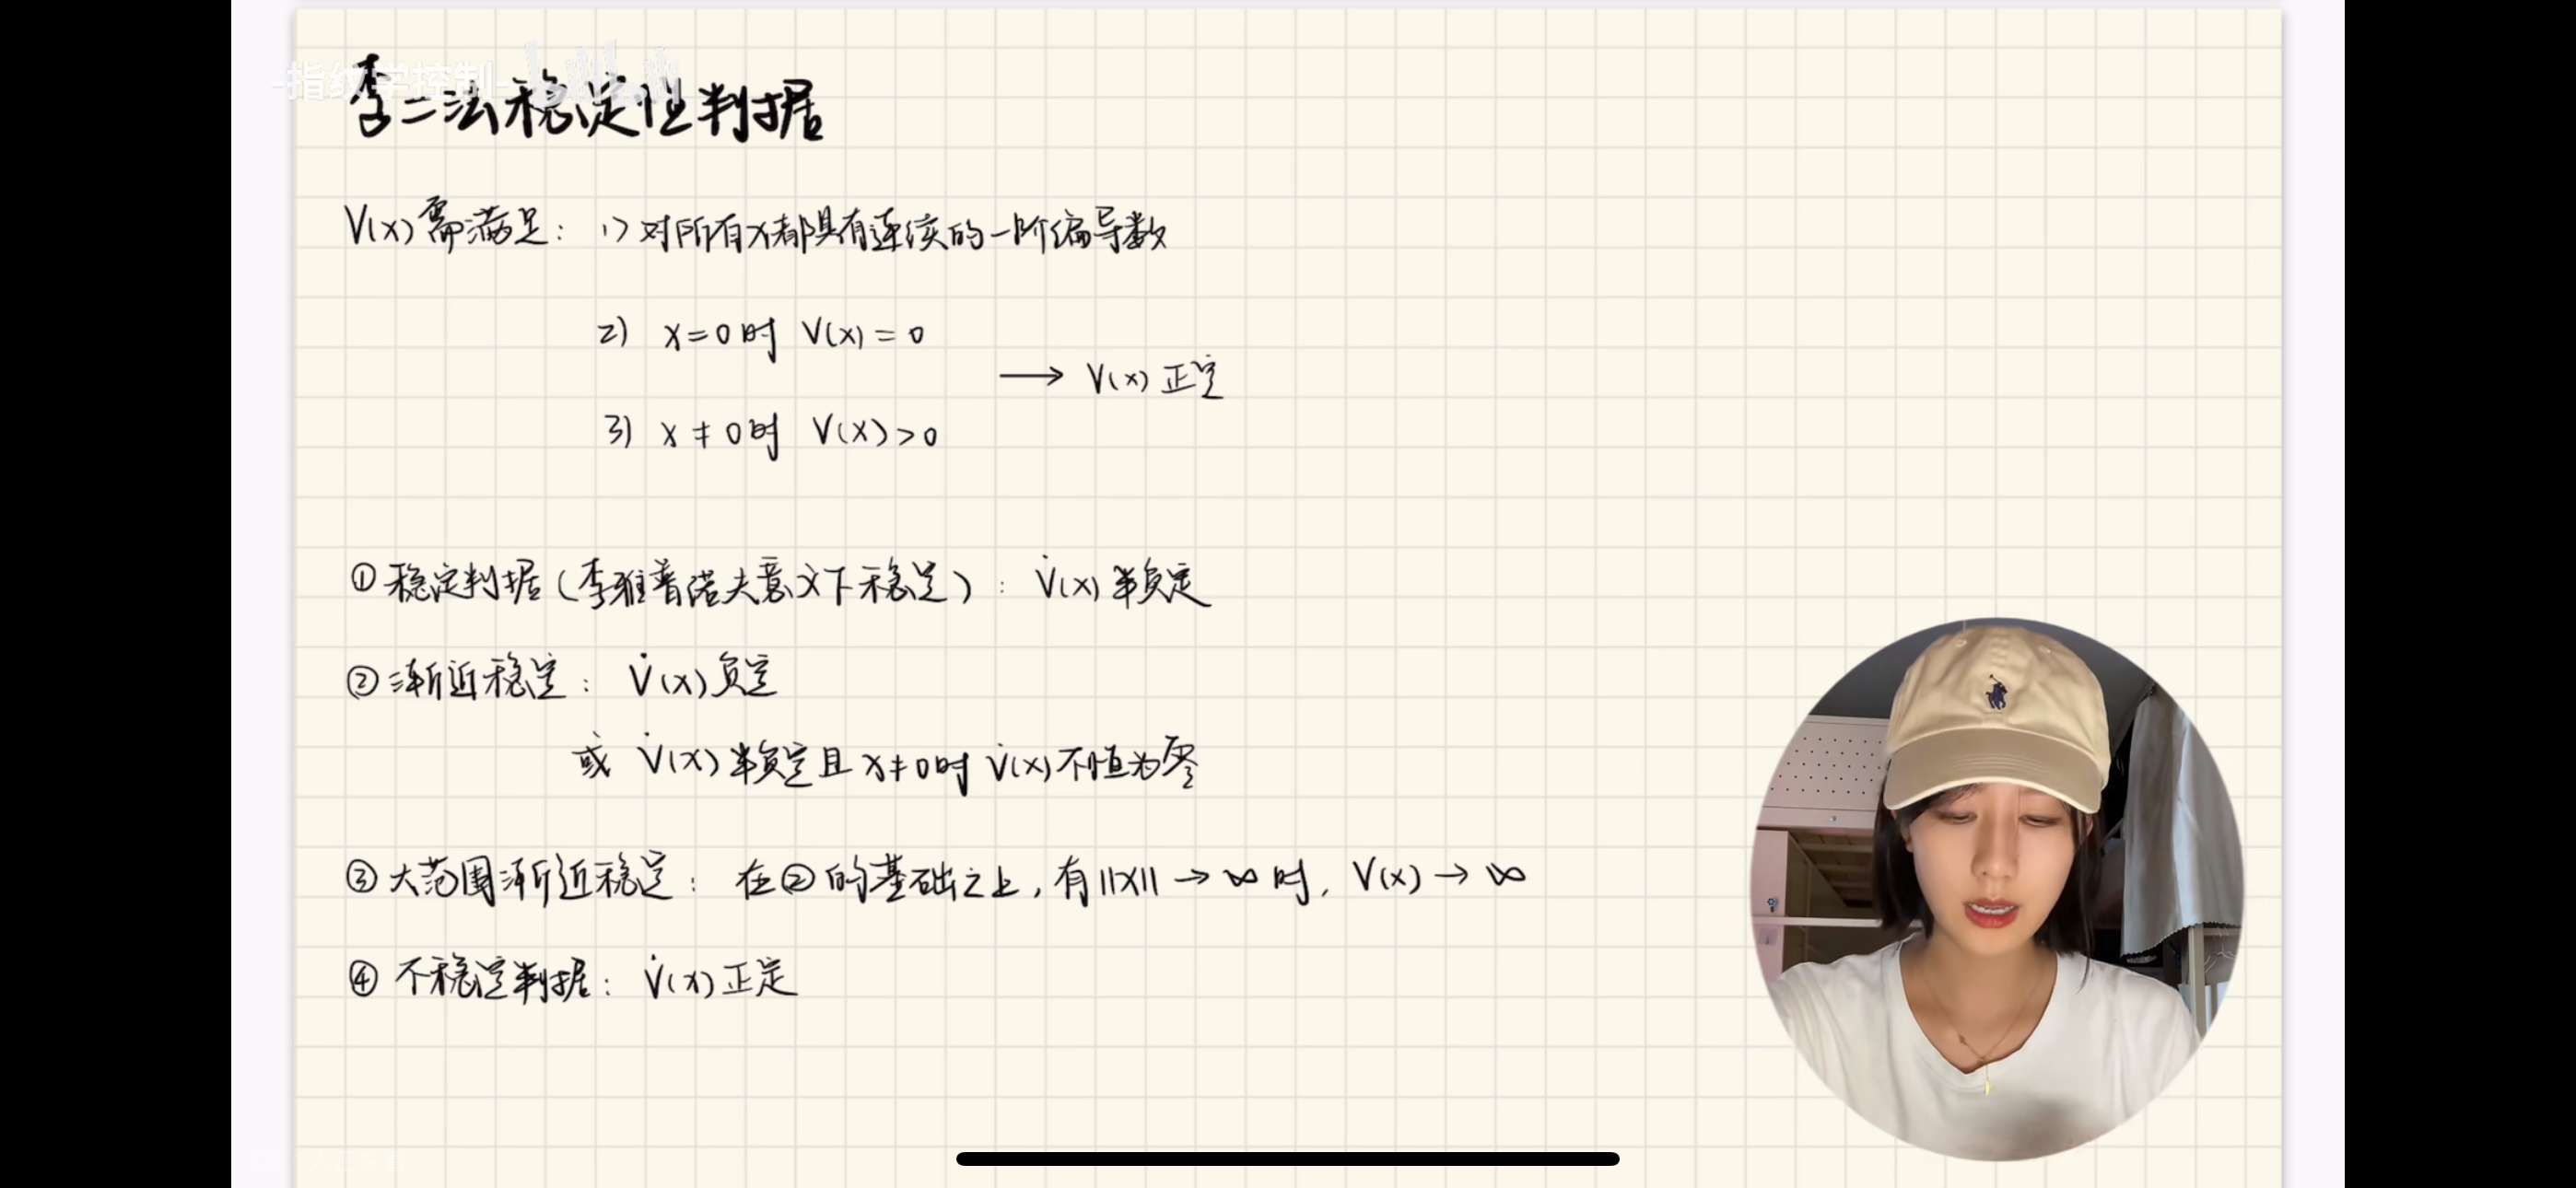 -指纹学控制- bilibili
李二法稳定性判据
V(x)需满足: 1) 对所有x都具有连续的一阶偏导数
2) x=0时 V(x)=0
→ V(x) 正定
3) x≠0时 V(x)>0
① 稳定判据(李雅普诺夫意义下稳定): V̇(x) 半负定
② 渐近稳定: V̇(x)负定
或 V̇(x)半负定且x≠0时 V̇(x)不恒为零
③ 大范围渐近稳定: 在②的基础之上,有||x||→∞时, V(x)→∞
④ 不稳定判据: V̇(x)正定